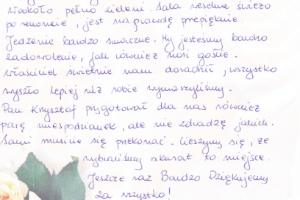 wokoło pełno zieleni. Sala weselna świeżo
po remoncie, jest naprawdę przepięknie.
Jedzenie bardzo smaczne. My jesteśmy bardzo
zadowolenie, jak również nasi goście.
Właściciel świetnie nam doradził, wszystko
wyszło lepiej niż sobie wymarzyliśmy.
Pan Krzysztof przygotował dla nas również
parę niespodzianek, ale nie zdradzę jakich.
Sami musicie się przekonać. Cieszymy się, że
wybraliśmy akurat to miejsce.
Jeszcze raz Bardzo Dziękujemy
za wszystko!